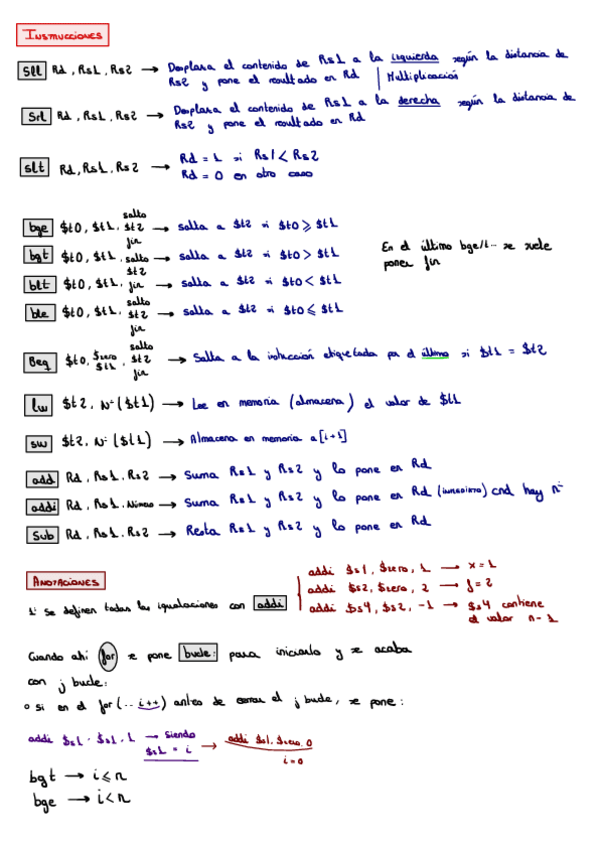 Instrucciones
sll Rd, Rs1, Rs2 → Desplaza el contenido de Rs1 a la izquierda según la distancia de
Rs2 y pone el resultado en Rd | Multiplicación
Srl Rd, Rs1, Rs2 → Desplaza el contenido de Rs1 a la derecha según la distancia de
Rs2 y pone el resultado en Rd
slt Rd, Rs1, Rs2 → Rd = 1 si Rs1 < Rs2
Rd = 0 en otro caso
bge $t0, $t1, salto $t2 fin → salta a $t2 si $t0 ⩾ $t1
bgt $t0, $t1, salto $t2 → salta a $t2 si $t0 > $t1
blt $t0, $t1, fin → salta a $t2 si $t0 < $t1
ble $t0, $t1, salto $t2 fin → salta a $t2 si $t0 ⩽ $t1
En el último bge/t... se suele
poner fin
Beq $t0, $zero $t1, salto $t2 fin → Salta a la instrucción etiquetada por el último si $t1 = $t2
lw $t2, Nº($t1) → Lee en memoria (almacena) el valor de $t1
sw $t2, Nº($t1) → Almacena en memoria a[i+1]
add Rd, Rs1, Rs2 → Suma Rs1 y Rs2 y lo pone en Rd
addi Rd, Rs1, Número → Suma Rs1 y Rs2 y lo pone en Rd (inmediato) cnd hay nº
Sub Rd, Rs1, Rs2 → Resta Rs1 y Rs2 y lo pone en Rd
Anotaciones
1º Se definen todas las igualaciones con addi
addi $s1, $zero, 1 → x = 1
addi $s2, $zero, 2 → j = 2
addi $s4, $s2, -1 → $s4 contiene
el valor n-1
Cuando ahí for se pone bucle: para iniciarlo y se acaba
con j bucle:
o si en el for (.. i++) antes de cerrar el j bucle, se pone:
addi $s1, $s1, 1 → siendo
$s1 = i → addi $s1, $zero, 0
i=0
bgt → i ⩽ n
bge → i < n